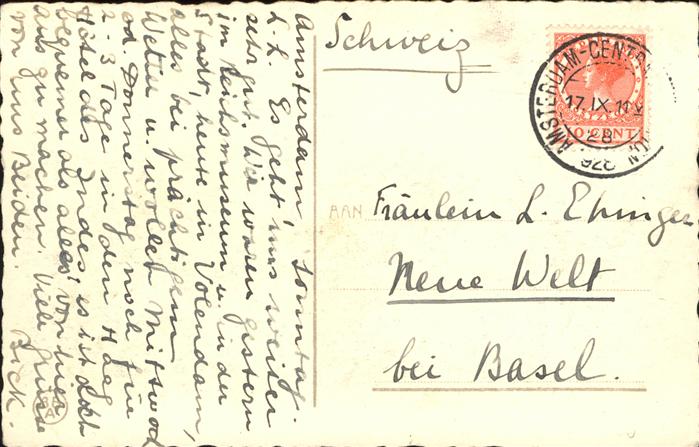 Amsterdam Sonntag.
L. L. Es geht uns weiter
sehr gut. Wir waren gestern
im Reichsmuseum u. in der
Stadt, heute in Volendam,
alles bei prächtigem
Wetter u. wollen Mittwoch
od. Donnerstag noch für
2-3 Tage in den Haag
Hôtel des Indes; es ist doch
bequemer als alles von hier
aus zu machen. Viele Grüsse
von uns Beiden.
Schweiz
AMSTERDAM-CENTRAAL
17.IX.11V
28
1928
10 CENT
AAN Fräulein L. Ehinger
Neue Welt
bei Basel.